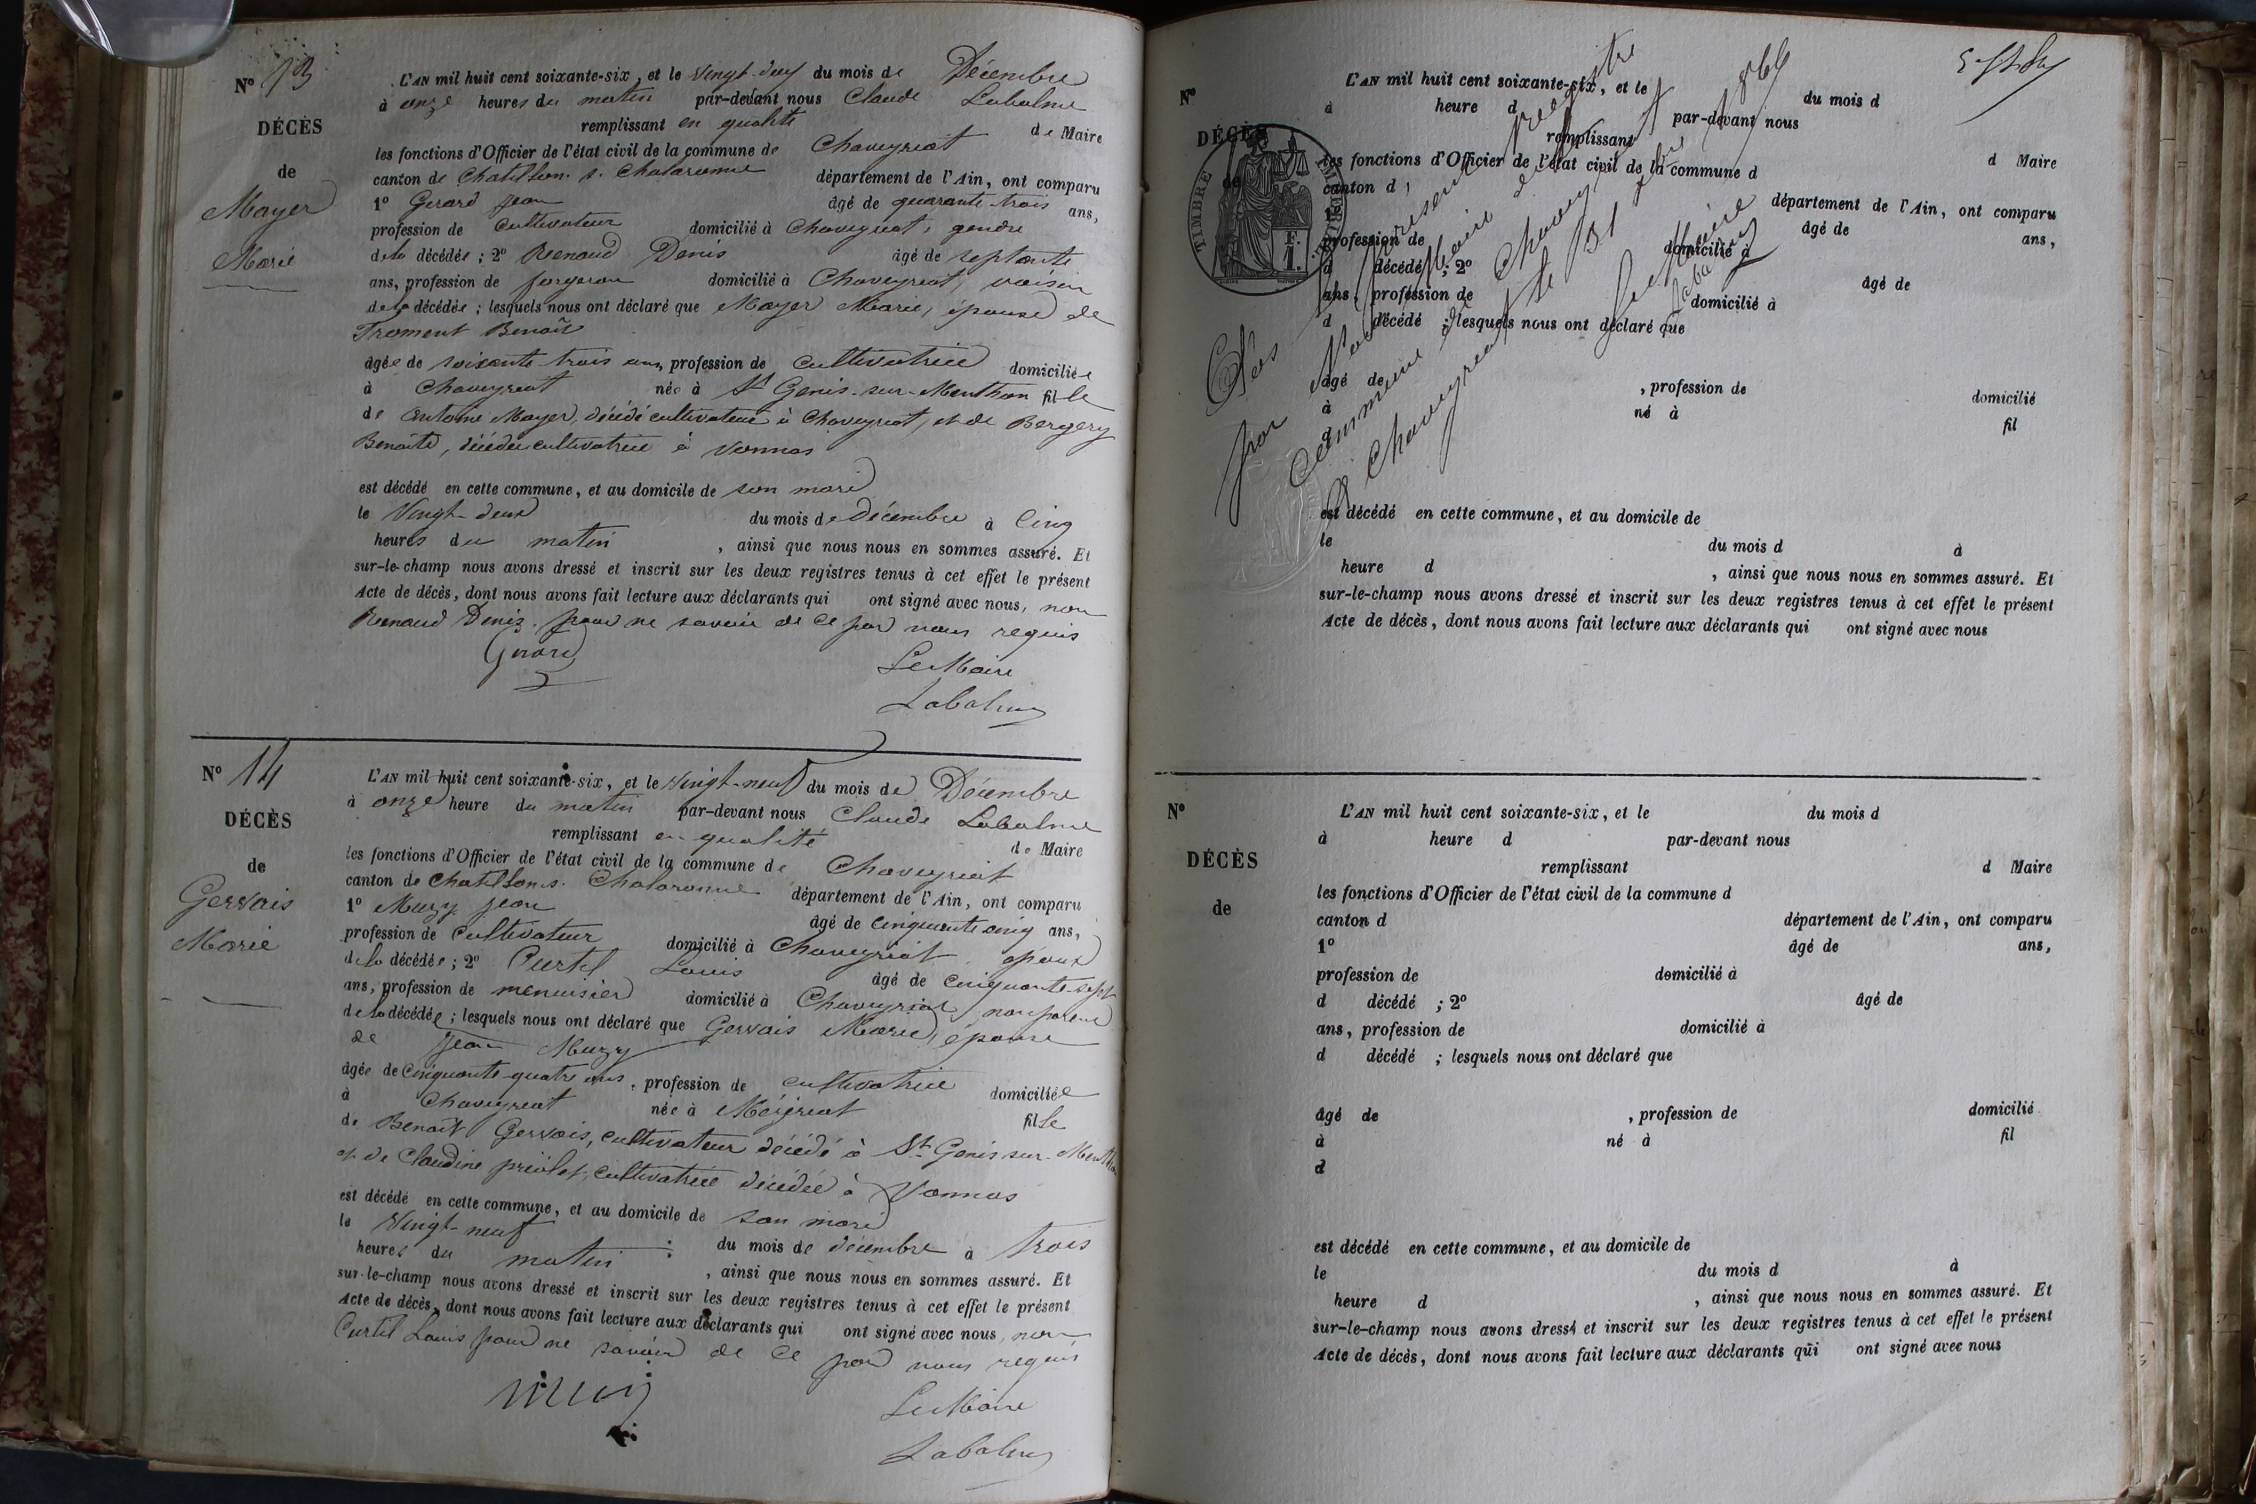 N° 13
DÉCÈS
de
Mayer
Marie
L'AN mil huit cent soixante-six, et le vingt-deux du mois de Décembre
à onze heures du matin par-devant nous Claude Labalme
remplissant en qualité de Maire
les fonctions d'Officier de l'état civil de la commune de Chaveyriat
canton de Chatillon s. Chalaronne département de l'Ain, ont comparu
1° Gerard Jean âgé de quarante-trois ans,
profession de cultivateur domicilié à Chaveyriat, gendre
de la décédée ; 2° Renaud Denis âgé de septante
ans, profession de forgeron domicilié à Chaveyriat, voisin
de la décédée ; lesquels nous ont déclaré que Mayer Marie, épouse de
Froment Benoît
âgée de soixante-trois ans, profession de cultivatrice domiciliée
à Chaveyriat née à St Genis-sur-Menthon fille
de Antoine Mayer, décédé cultivateur à Chaveyriat, et de Bergery
Benoîte, décédée cultivatrice à Vonnas
est décédé en cette commune, et au domicile de son mari
le Vingt-deux du mois de Décembre à Cinq
heures du matin , ainsi que nous nous en sommes assuré. Et
sur-le-champ nous avons dressé et inscrit sur les deux registres tenus à cet effet le présent
Acte de décès, dont nous avons fait lecture aux déclarants qui ont signé avec nous, non
Renaud Denis pour ne savoir de ce par nous requis
Gerard
Le Maire
Labalme
N° 14
DÉCÈS
de
Gervais
Marie
L'AN mil huit cent soixante-six, et le vingt-neuf du mois de Décembre
à onze heure du matin par-devant nous Claude Labalme
remplissant en qualité de Maire
les fonctions d'Officier de l'état civil de la commune de Chaveyriat
canton de Chatillon s. Chalaronne département de l'Ain, ont comparu
1° Muzy Jean âgé de cinquante cinq ans,
profession de cultivateur domicilié à Chaveyriat époux
de la décédée ; 2° Curtil Louis âgé de cinquante-sept
ans, profession de menuisier domicilié à Chaveyriat, non parent
de la décédée ; lesquels nous ont déclaré que Gervais Marie, épouse
de Jean Muzy
âgée de Cinquante-quatre ans, profession de cultivatrice domiciliée
à Chaveyriat née à Mézériat fille
de Benoît Gervais, cultivateur décédé à St Genis sur-Menthon
et de Claudine priolet, cultivatrice décédée à Vonnas
est décédé en cette commune, et au domicile de son mari
le Vingt-neuf du mois de décembre à trois
heures du matin , ainsi que nous nous en sommes assuré. Et
sur-le-champ nous avons dressé et inscrit sur les deux registres tenus à cet effet le présent
Acte de décès, dont nous avons fait lecture aux déclarants qui ont signé avec nous, non
Curtil Louis pour ne savoir de ce par nous requis
Muzy
Le Maire
Labalme
N°
DÉCÈS
de
TIMBRE IMPÉRIAL
1 F.
L'AN mil huit cent soixante-six, et le du mois d
à heure d par-devant nous
remplissant d Maire
les fonctions d'Officier de l'état civil de la commune d
canton d département de l'Ain, ont comparu
1° âgé de ans,
profession de domicilié à
d décédé ; 2° âgé de
ans, profession de domicilié à
d décédé ; lesquels nous ont déclaré que
âgé de , profession de domicilié
à né à fil
d
est décédé en cette commune, et au domicile de
le du mois d à
heure d , ainsi que nous nous en sommes assuré. Et
sur-le-champ nous avons dressé et inscrit sur les deux registres tenus à cet effet le présent
Acte de décès, dont nous avons fait lecture aux déclarants qui ont signé avec nous
Clos le présent registre
par Nous Maire de la
Commune de Chaveyriat
à Chaveyriat le 31 1866
Le Maire
Labalme
N°
DÉCÈS
de
L'AN mil huit cent soixante-six, et le du mois d
à heure d par-devant nous
remplissant d Maire
les fonctions d'Officier de l'état civil de la commune d
canton d département de l'Ain, ont comparu
1° âgé de ans,
profession de domicilié à
d décédé ; 2° âgé de
ans, profession de domicilié à
d décédé ; lesquels nous ont déclaré que
âgé de , profession de domicilié
à né à fil
d
est décédé en cette commune, et au domicile de
le du mois d à
heure d , ainsi que nous nous en sommes assuré. Et
sur-le-champ nous avons dressé et inscrit sur les deux registres tenus à cet effet le présent
Acte de décès, dont nous avons fait lecture aux déclarants qui ont signé avec nous